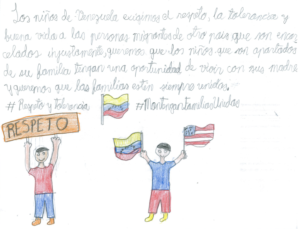 Los niños de Venezuela exigimos el respeto, la tolerancia y
buena vida a las personas migrantes de otro pais que son encar
celados injustamente, queremos que los niños que son apartados
de su familia tengan una oportunidad de vivir con sus madres
y queremos que las familias estén siempre unidas.
# Respeto y tolerancia #MantenganFamiliasUnidas
RESPETO